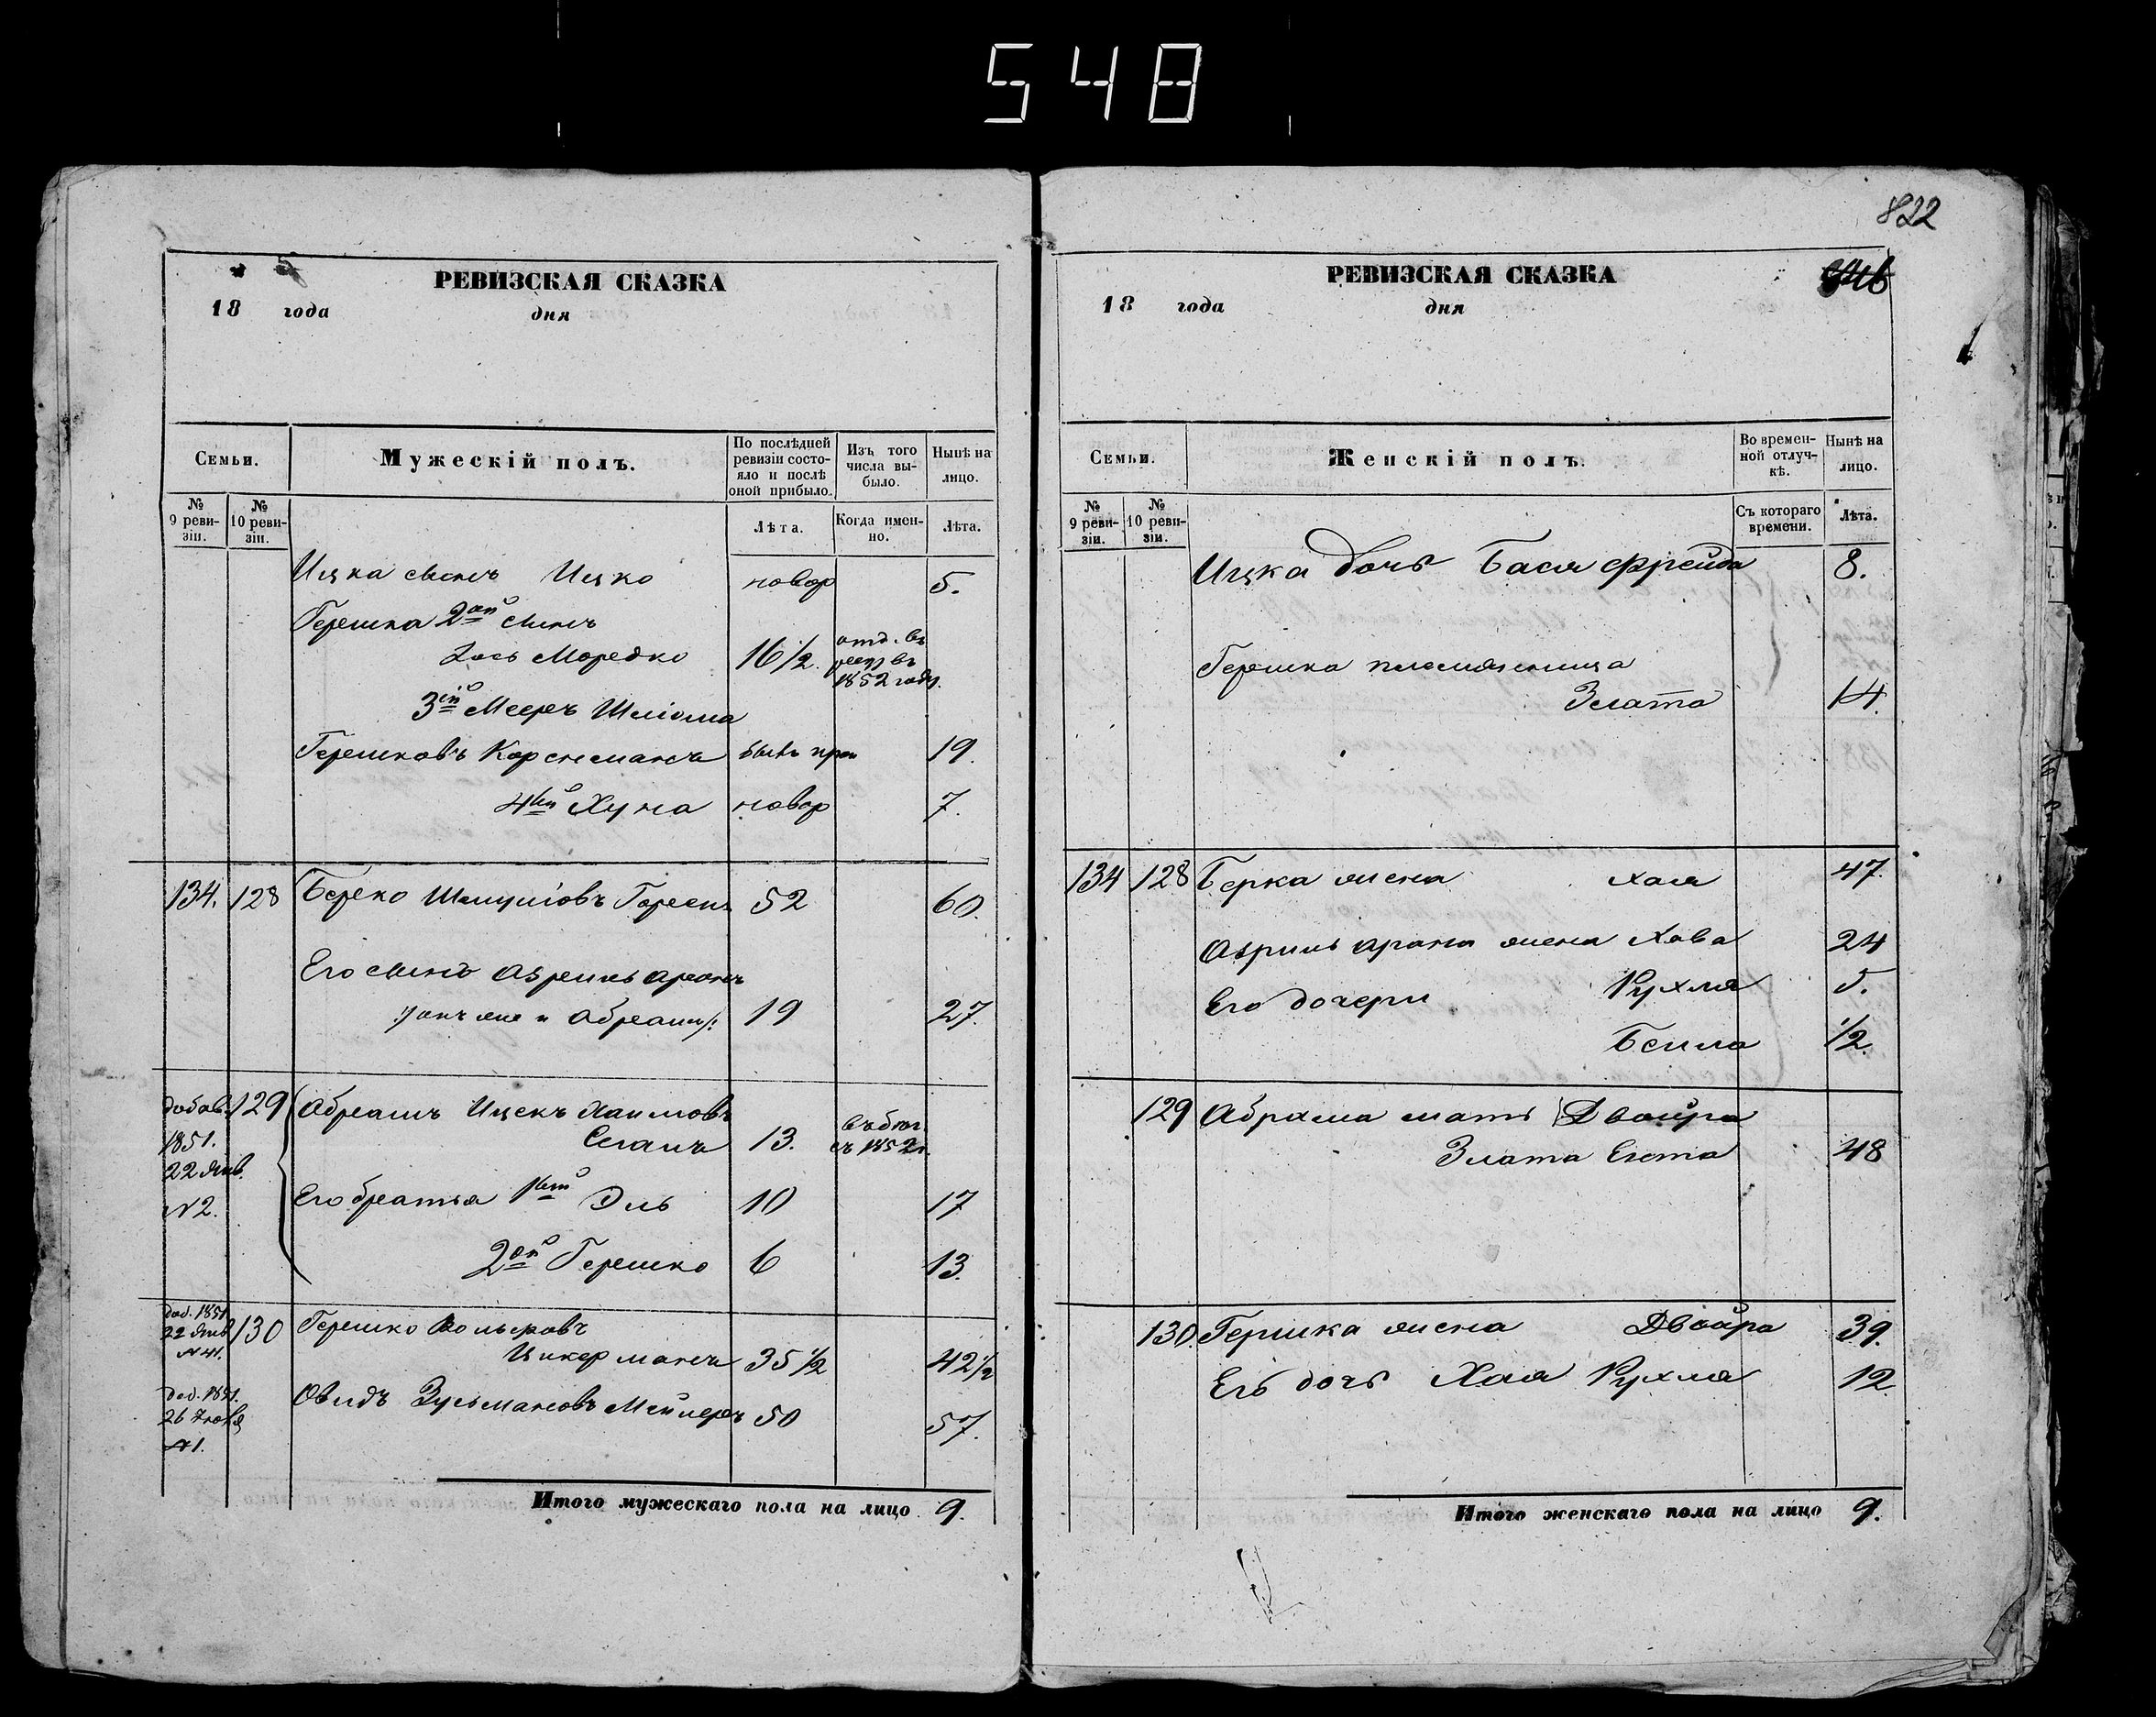 548
822
РЕВИЗСКАЯ СКАЗКА
18 года дня
Семьи.
Мужескій полъ.
По послѣдней ревизіи состояло и послѣ оной прибыло.
Изъ того числа выбыло.
Нынѣ на лицо.
№ 9 ревизіи.
№ 10 ревизіи.
Лѣта.
Когда именно.
Лѣта.
Ицка сынъ Ицко новор 5.
Гершка 2ой сынъ
Мордко 16 1/2. отд. въ рекр въ 1852 году.
3ій Мееръ Шліома
Гершковъ Корснсманъ былъ проп 19.
4ый Хуна новор 7.
134. 128 Берко Шмуліовъ 52 60.
Его сынъ Аврумъ Аронъ
онъ же и Абрамъ 19 27.
добав. 129 Абрамъ Ицекъ Хаимовъ
1851. 22 Янв. №2.
Сеганъ 13. въ бѣг. съ 1852 г.
Его братья 1ый Эль 10 17
2ой Гершко 6 13.
доб. 1851 22 Янв №41. 130 Гершко Вольковъ
Цикерманъ 35 1/2 42 1/2
доб. 1851. 26 №1.
Овидъ Зусьмановъ Мейлеръ 50 57.
Итого мужескаго пола на лицо 9.
РЕВИЗСКАЯ СКАЗКА
18 года дня
Семьи.
Женскій полъ.
Во временной отлучкѣ.
Нынѣ на лицо.
№ 9 ревизіи.
№ 10 ревизіи.
Съ котораго времени.
Лѣта.
Ицка дочь Бася Фрейда 8.
Гершка племянница
Злата 14.
134 128 Берка жена Хая 47.
Аврумъ Арона жена Хава 24
Его дочери Рухля 5.
Бейла 1/2.
129 Абрама мать Двойра
Злата Ента 48
130. Гершка жена Двойра 39.
Его дочь Хая Рухля 12.
Итого женскаго пола на лицо 9.